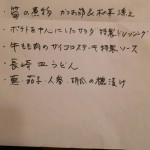 ・筍の煮物 かつお節&和草添え
・ポテトを中心にしたサラダ 特製ドレッシング
・牛もも肉のサイコロステーキ 特製ソース
・長崎皿うどん
・蕪・茄子・人参・胡瓜の糠漬け